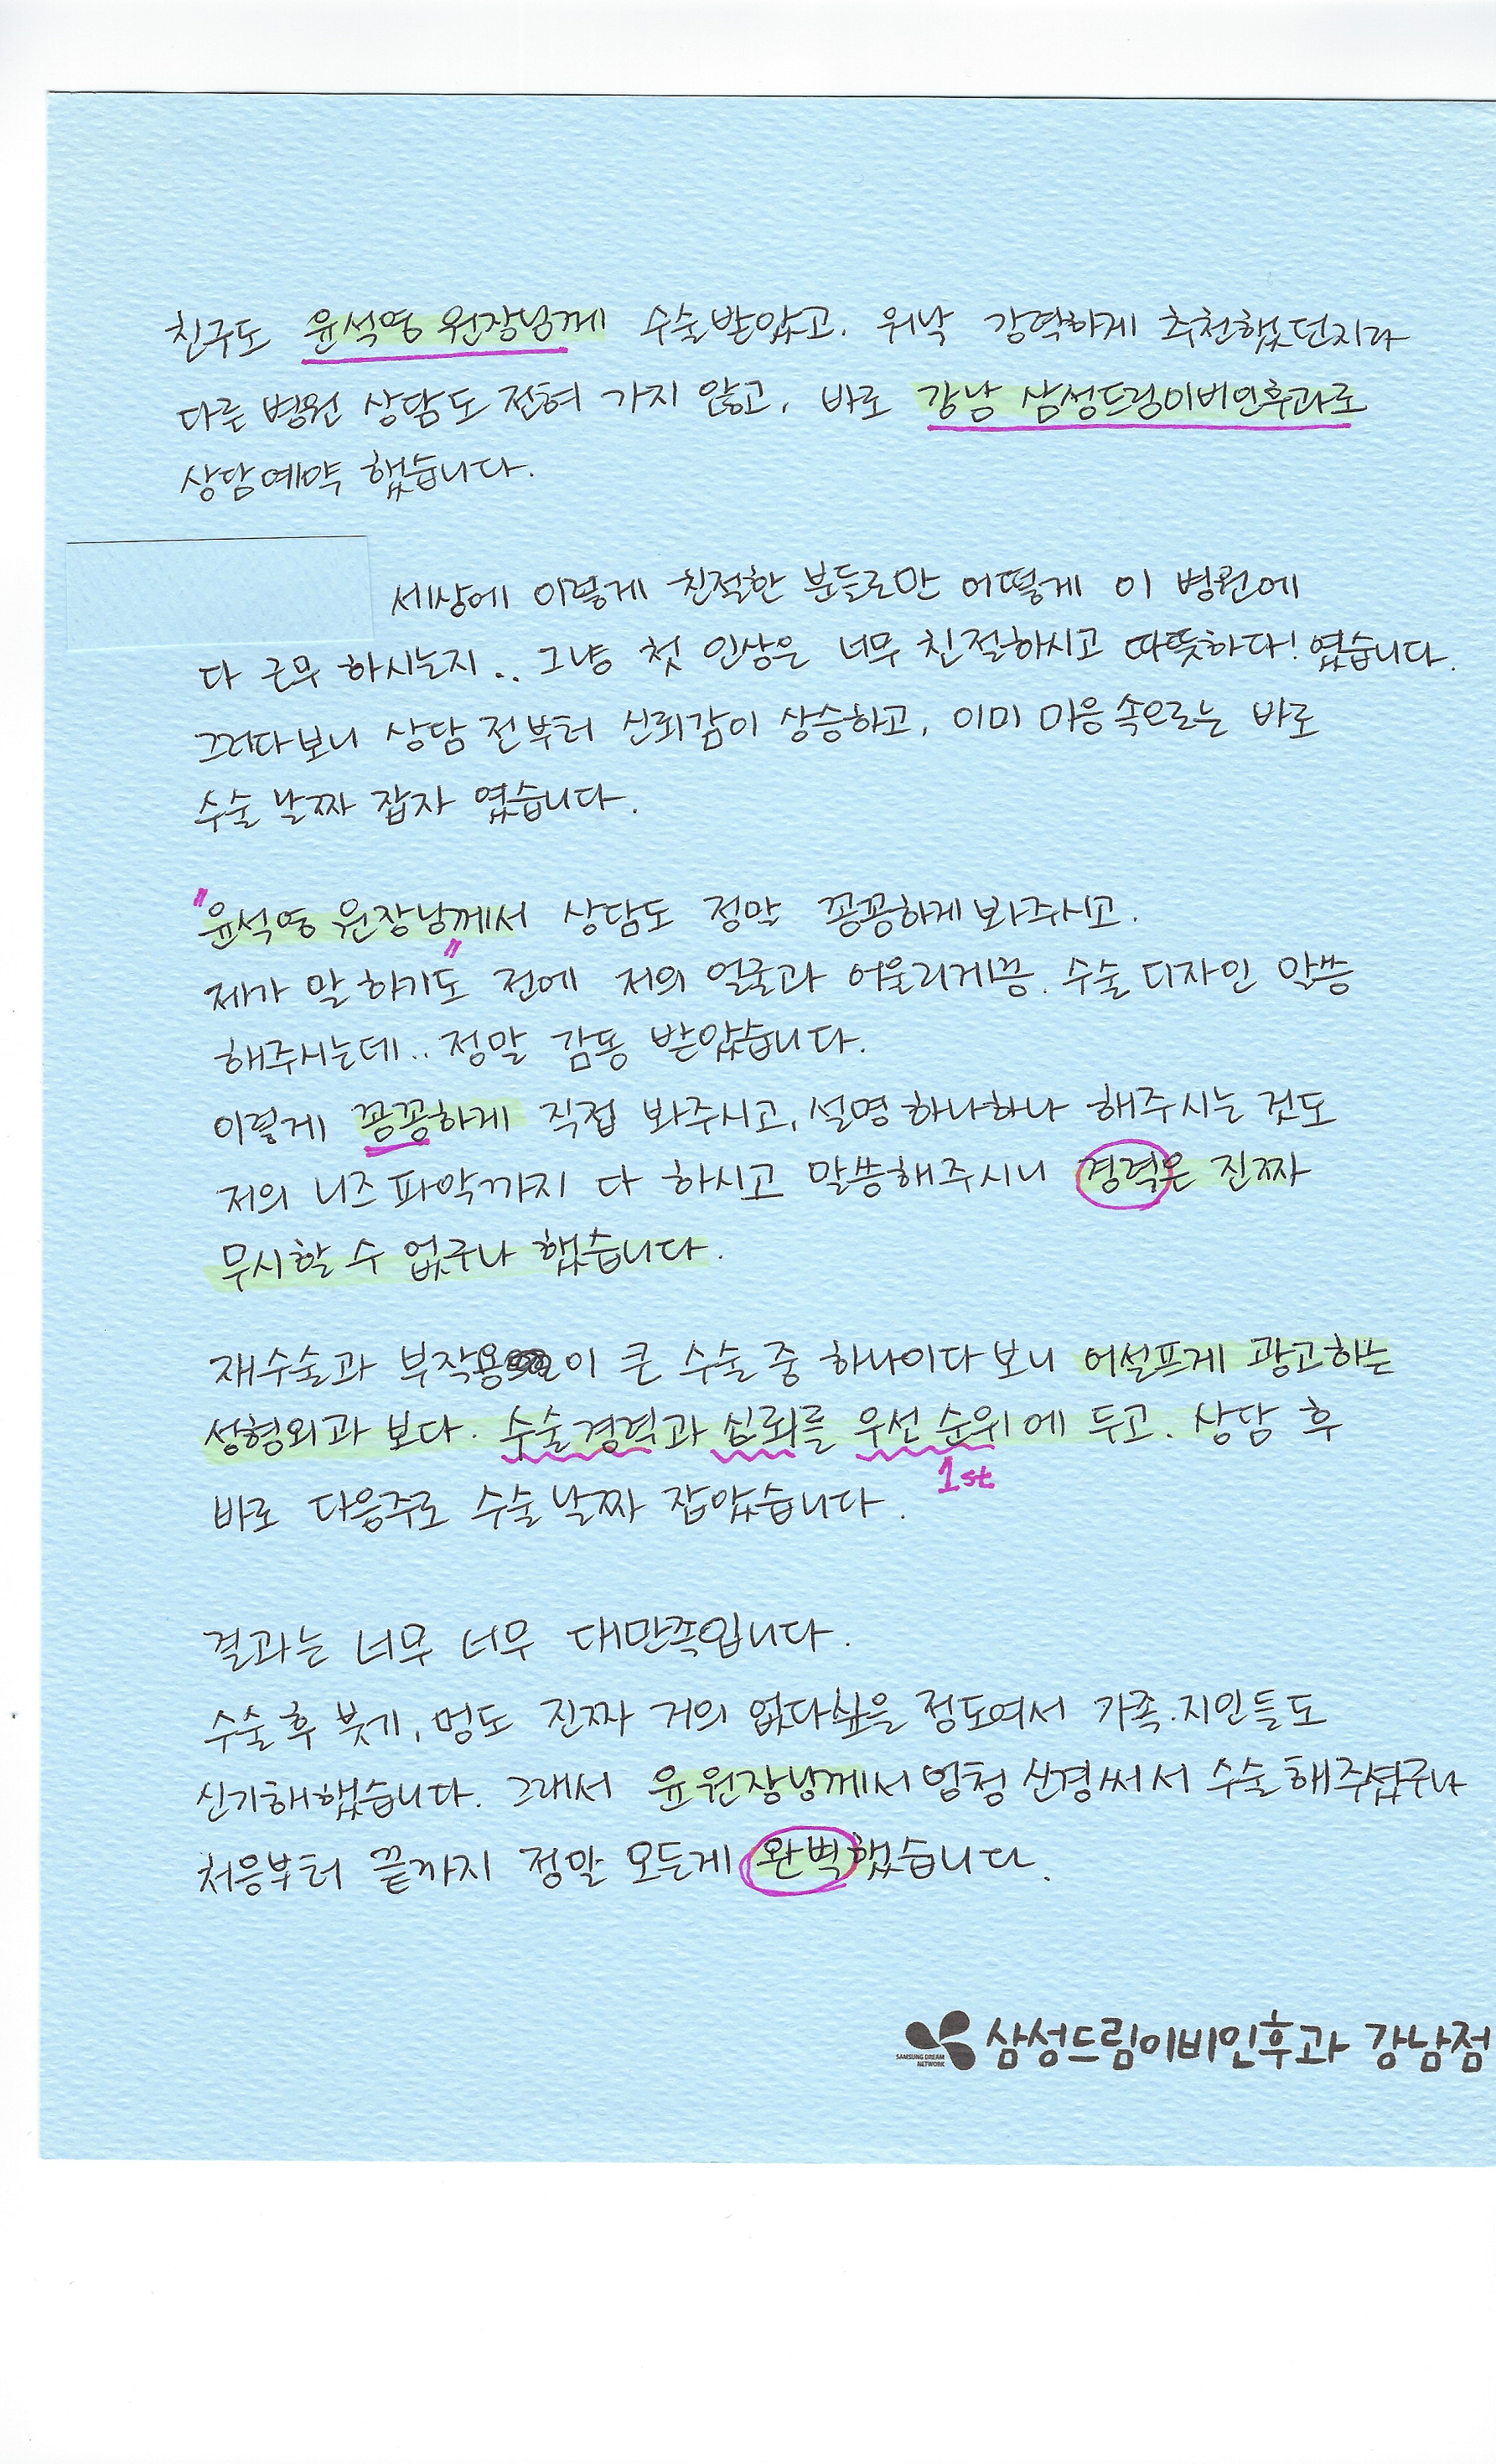 친구도 윤석영 원장님께 수술받았고. 워낙 강력하게 추천했던지라
다른 병원 상담도 전혀 가지 않고, 바로 강남 삼성드림이비인후과로
상담예약 했습니다.
세상에 이렇게 친절한 분들로만 어떻게 이 병원에
다 근무 하시는지.. 그냥 첫 인상은 너무 친절하시고 따뜻하다! 였습니다.
그러다보니 상담 전부터 신뢰감이 상승하고, 이미 마음속으로는 바로
수술 날짜 잡자 였습니다.
"윤석영 원장님께서 상담도 정말 꼼꼼하게 봐주시고.
제가 말 하기도" 전에 저의 얼굴과 어울리게끔. 수술 디자인 말씀
해주시는데.. 정말 감동 받았습니다.
이렇게 꼼꼼하게 직접 봐주시고, 설명 하나하나 해주시는 것도
저의 니즈 파악까지 다 하시고 말씀해주시니 경력은 진짜
무시할 수 없구나 했습니다.
재수술과 부작용이 큰 수술 중 하나이다 보니 어설프게 광고하는
성형외과 보다. 수술경력과 심뢰를 우선 순위에 두고. 상담 후
1st
바로 다음주로 수술 날짜 잡았습니다.
결과는 너무 너무 대만족입니다.
수술 후 붓기, 멍도 진짜 거의 없다싶을 정도여서 가족.지인들도
신기해했습니다. 그래서 윤원장님께서 엄청 신경써서 수술해주셨구나
처음부터 끝까지 정말 모든게 완벽했습니다.
SAMSUNG DREAM
NETWORK
삼성드림이비인후과 강남점